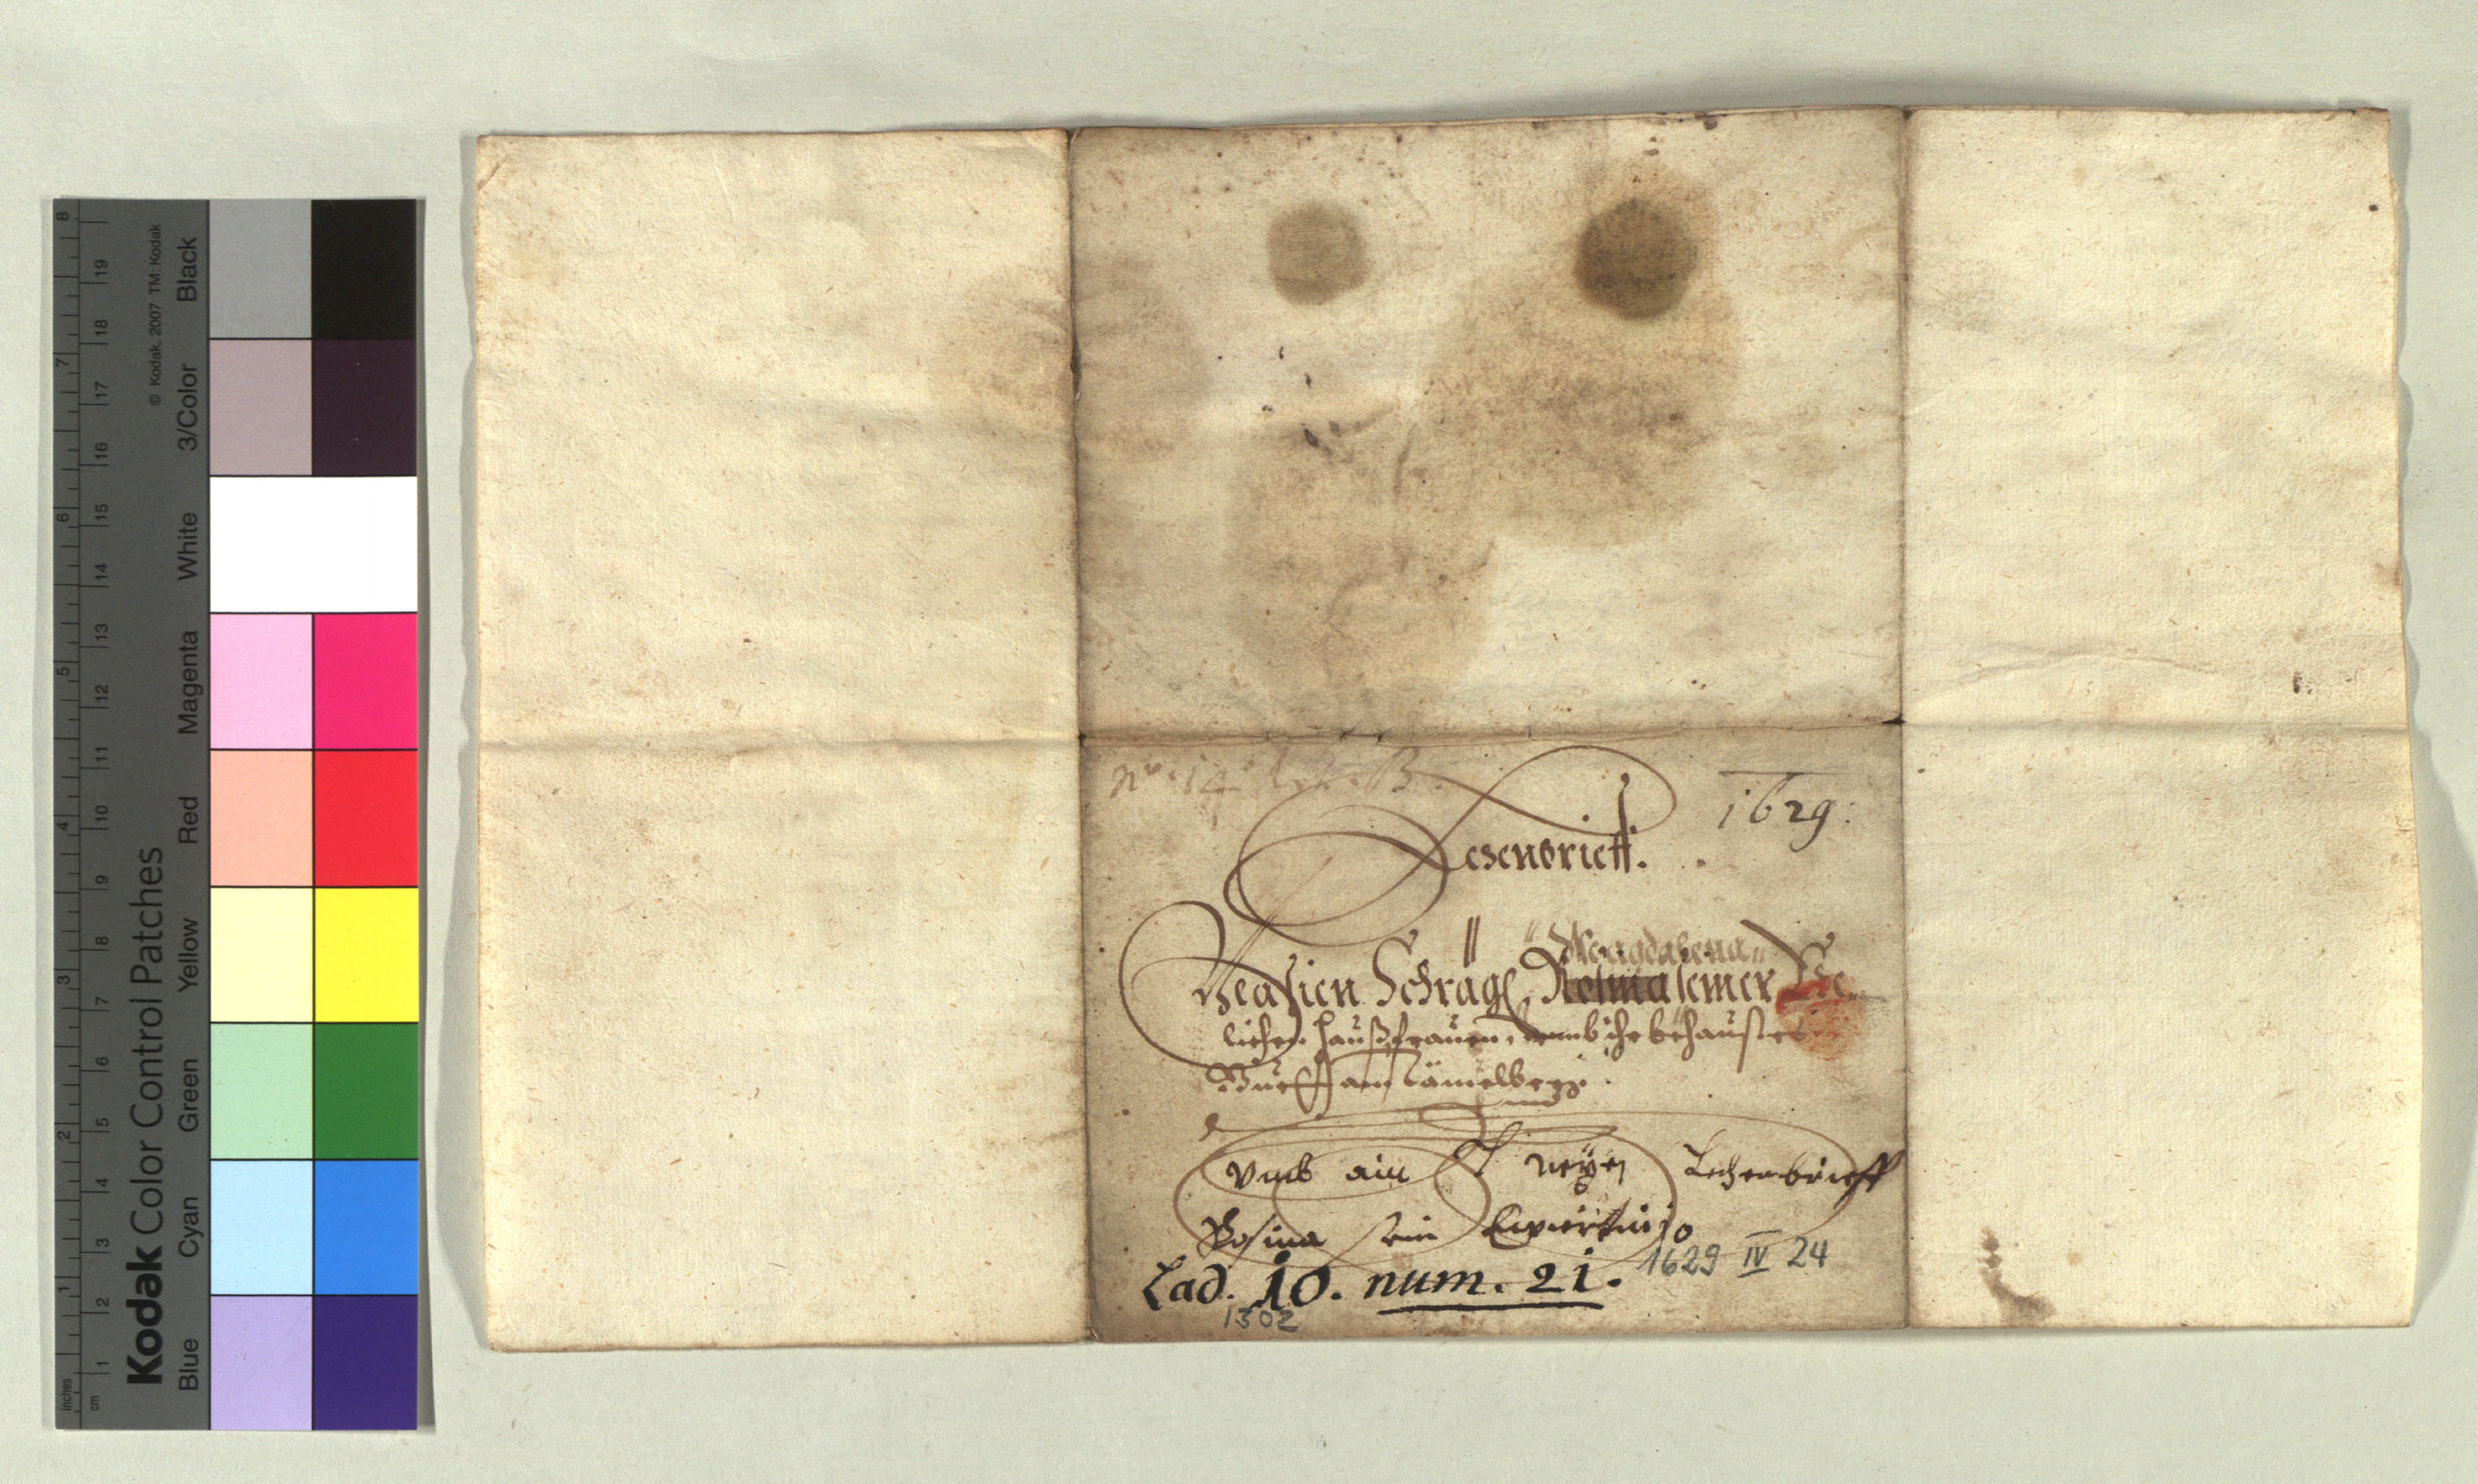 Nro. 14 Lit. B.
1629:
Lehenbrieff.
Magdalena
Schrägl, seiner Ehe-
lichen Haußfrauen, umb ihr behaustes
Guet am Lämelberg.
Vmb ain neyen Lehenbrieff
Rosina sein
1629 IV 24
Lad. 10. num. 21.
1302
Kodak Color Control Patches
© Kodak, 2007 TM: Kodak
Blue Cyan Green Yellow Red Magenta White 3/Color Black
inches 1 2 3 4 5 6 7 8
cm 1 2 3 4 5 6 7 8 9 10 11 12 13 14 15 16 17 18 19